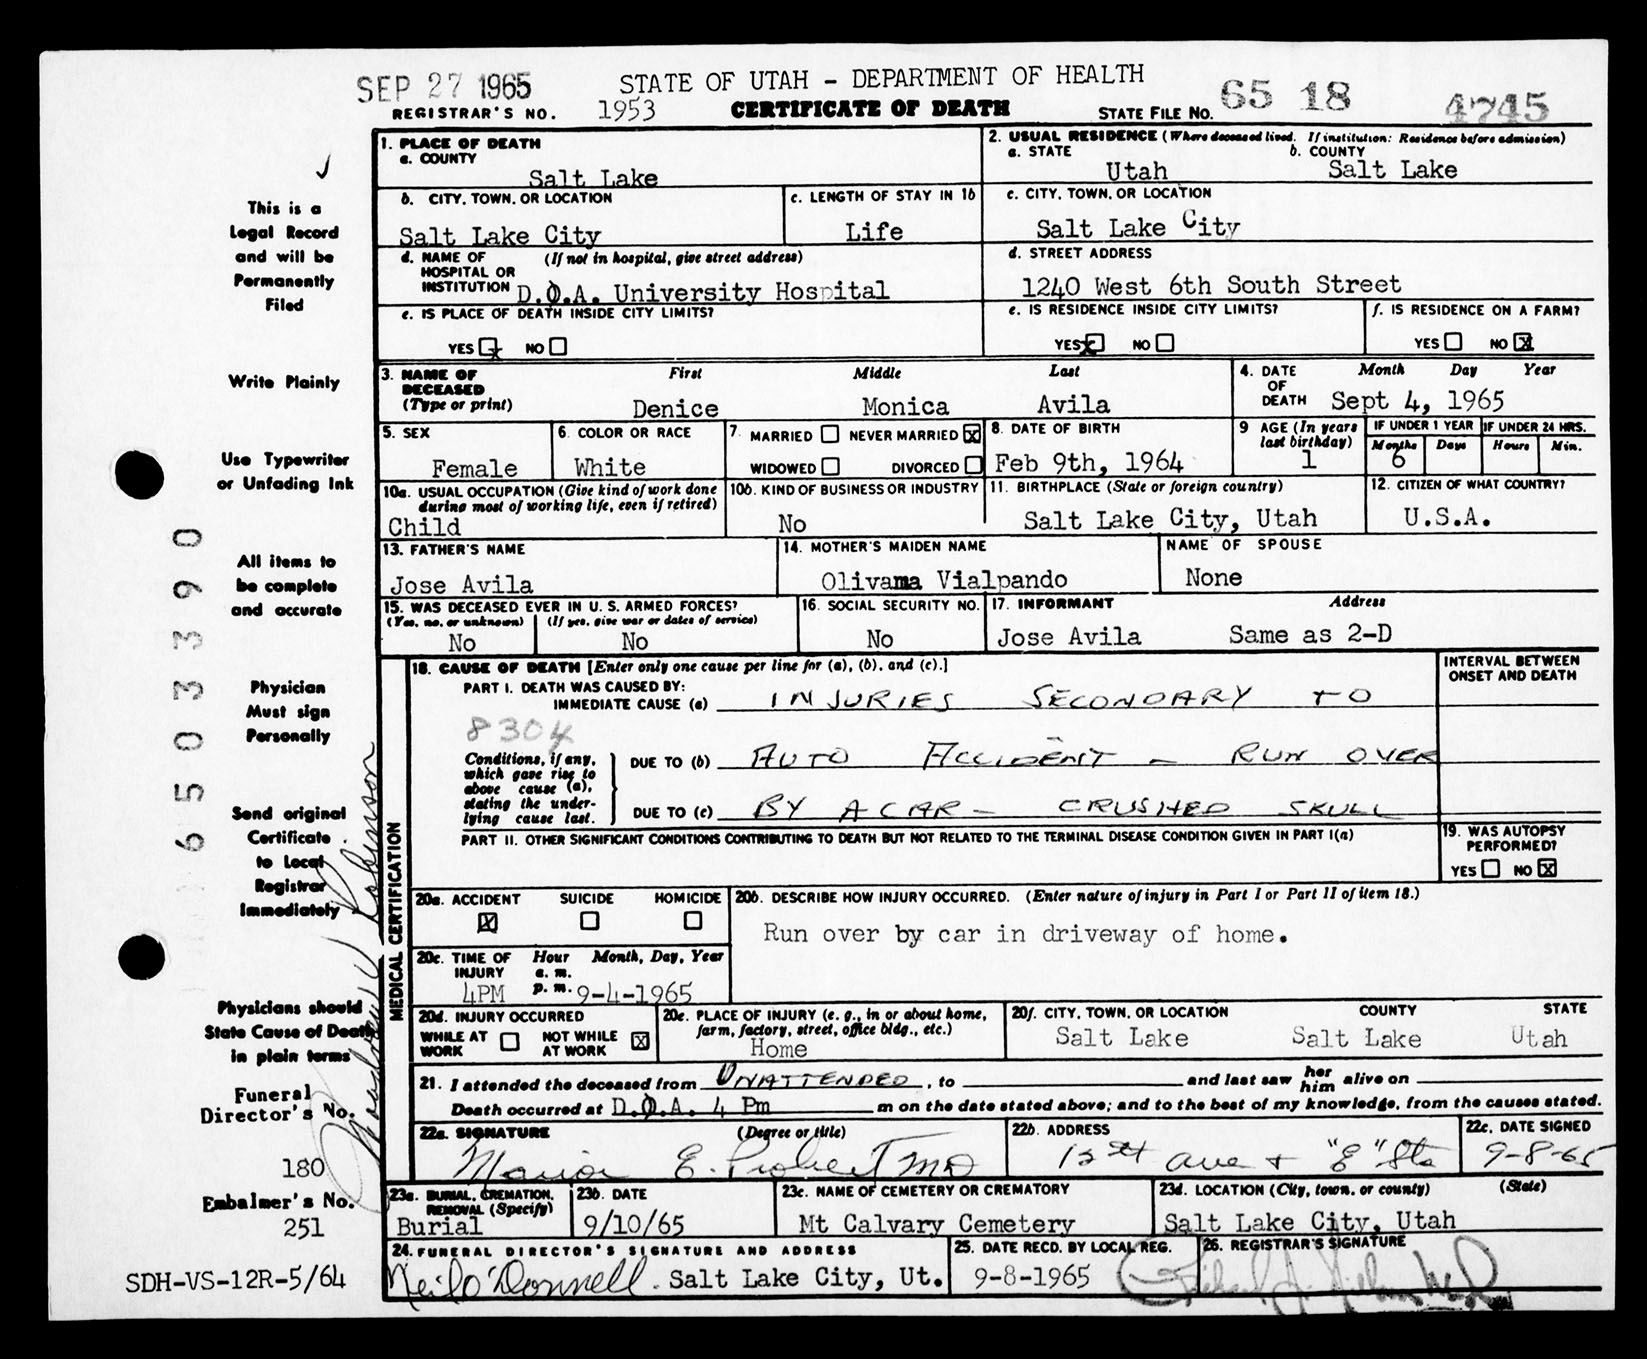 SEP 27 1965
STATE OF UTAH - DEPARTMENT OF HEALTH
REGISTRAR'S NO. 1953 CERTIFICATE OF DEATH STATE FILE NO. 65 18 4745
1. PLACE OF DEATH
a. COUNTY
Salt Lake
2. USUAL RESIDENCE (Where deceased lived. If institution: Residence before admission)
a. STATE b. COUNTY
Utah Salt Lake
b. CITY, TOWN, OR LOCATION
Salt Lake City
c. LENGTH OF STAY IN 1b
Life
c. CITY, TOWN, OR LOCATION
Salt Lake City
d. NAME OF (If not in hospital, give street address)
HOSPITAL OR
INSTITUTION D.O.A. University Hospital
d. STREET ADDRESS
1240 West 6th South Street
e. IS PLACE OF DEATH INSIDE CITY LIMITS?
YES X NO
e. IS RESIDENCE INSIDE CITY LIMITS?
YES X NO
f. IS RESIDENCE ON A FARM?
YES NO X
3. NAME OF First Middle Last
DECEASED
(Type or print) Denice Monica Avila
4. DATE Month Day Year
OF
DEATH Sept 4, 1965
5. SEX
Female
6. COLOR OR RACE
White
7. MARRIED NEVER MARRIED X
WIDOWED DIVORCED
8. DATE OF BIRTH
Feb 9th, 1964
9 AGE (In years
last birthday)
1
IF UNDER 1 YEAR IF UNDER 24 HRS.
Months Days Hours Min.
6
10a. USUAL OCCUPATION (Give kind of work done
during most of working life, even if retired)
Child
10b. KIND OF BUSINESS OR INDUSTRY
No
11. BIRTHPLACE (State or foreign country)
Salt Lake City, Utah
12. CITIZEN OF WHAT COUNTRY?
U.S.A.
13. FATHER'S NAME
Jose Avila
14. MOTHER'S MAIDEN NAME
Olivama Vialpando
NAME OF SPOUSE
None
15. WAS DECEASED EVER IN U. S. ARMED FORCES?
(Yes, no, or unknown) (If yes, give war or dates of service)
No No
16. SOCIAL SECURITY NO.
No
17. INFORMANT Address
Jose Avila Same as 2-D
MEDICAL CERTIFICATION
18. CAUSE OF DEATH [Enter only one cause per line for (a), (b), and (c).]
INTERVAL BETWEEN
ONSET AND DEATH
PART I. DEATH WAS CAUSED BY:
IMMEDIATE CAUSE (a) INJURIES SECONDARY TO
8304
Conditions, if any,
which gave rise to
above cause (a),
stating the under-
lying cause last.
DUE TO (b) AUTO ACCIDENT - RUN OVER
DUE TO (c) BY A CAR - CRUSHED SKULL
PART II. OTHER SIGNIFICANT CONDITIONS CONTRIBUTING TO DEATH BUT NOT RELATED TO THE TERMINAL DISEASE CONDITION GIVEN IN PART I(a)
19. WAS AUTOPSY
PERFORMED?
YES NO X
20a. ACCIDENT SUICIDE HOMICIDE
X
20b. DESCRIBE HOW INJURY OCCURRED. (Enter nature of injury in Part I or Part II of item 18.)
Run over by car in driveway of home.
20c. TIME OF Hour Month, Day, Year
INJURY a. m.
4PM p. m. 9-4-1965
20d. INJURY OCCURRED
WHILE AT NOT WHILE X
WORK AT WORK
20e. PLACE OF INJURY (e. g., in or about home,
farm, factory, street, office bldg., etc.)
Home
20f. CITY, TOWN, OR LOCATION COUNTY STATE
Salt Lake Salt Lake Utah
21. I attended the deceased from UNATTENDED, to and last saw her him alive on
Death occurred at D.O.A. 4 Pm m on the date stated above; and to the best of my knowledge, from the causes stated.
22a. SIGNATURE (Degree or title)
Marion E. Probert MD
22b. ADDRESS
12th Ave + "E" Sts
22c. DATE SIGNED
9-8-65
23a. BURIAL, CREMATION,
REMOVAL (Specify)
Burial
23b. DATE
9/10/65
23c. NAME OF CEMETERY OR CREMATORY
Mt Calvary Cemetery
23d. LOCATION (City, town, or county) (State)
Salt Lake City, Utah
24. FUNERAL DIRECTOR'S SIGNATURE AND ADDRESS
Neil O'Donnell. Salt Lake City, Ut.
25. DATE RECD. BY LOCAL REG.
9-8-1965
26. REGISTRAR'S SIGNATURE
This is a
Legal Record
and will be
Permanently
Filed
Write Plainly
Use Typewriter
or Unfading Ink
All items to
be complete
and accurate
Physician
Must sign
Personally
Send original
Certificate
to Local
Registrar
Immediately
Physicians should
State Cause of Death
in plain terms
Funeral
Director's No.
180
Embalmer's No.
251
SDH-VS-12R-5/64
65033390
Robinson